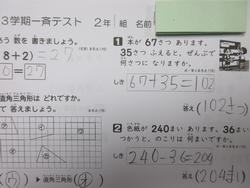 3学期一斉テスト 2年 組 名前
う 数を書きましょう。
8+2)
=27
=27
直角三角形は どれですか。
答えましょう。
直角三角形
1 本が 67さつ あります。
35さつ ふえると、ぜんぶで
何さつに なりますか。
しき
67+35=102
答え(102さつ
2 色紙が 240まい あります。36まい
つかうと、のこりは 何まいですか。
しき
240-36=204
答え(204まい